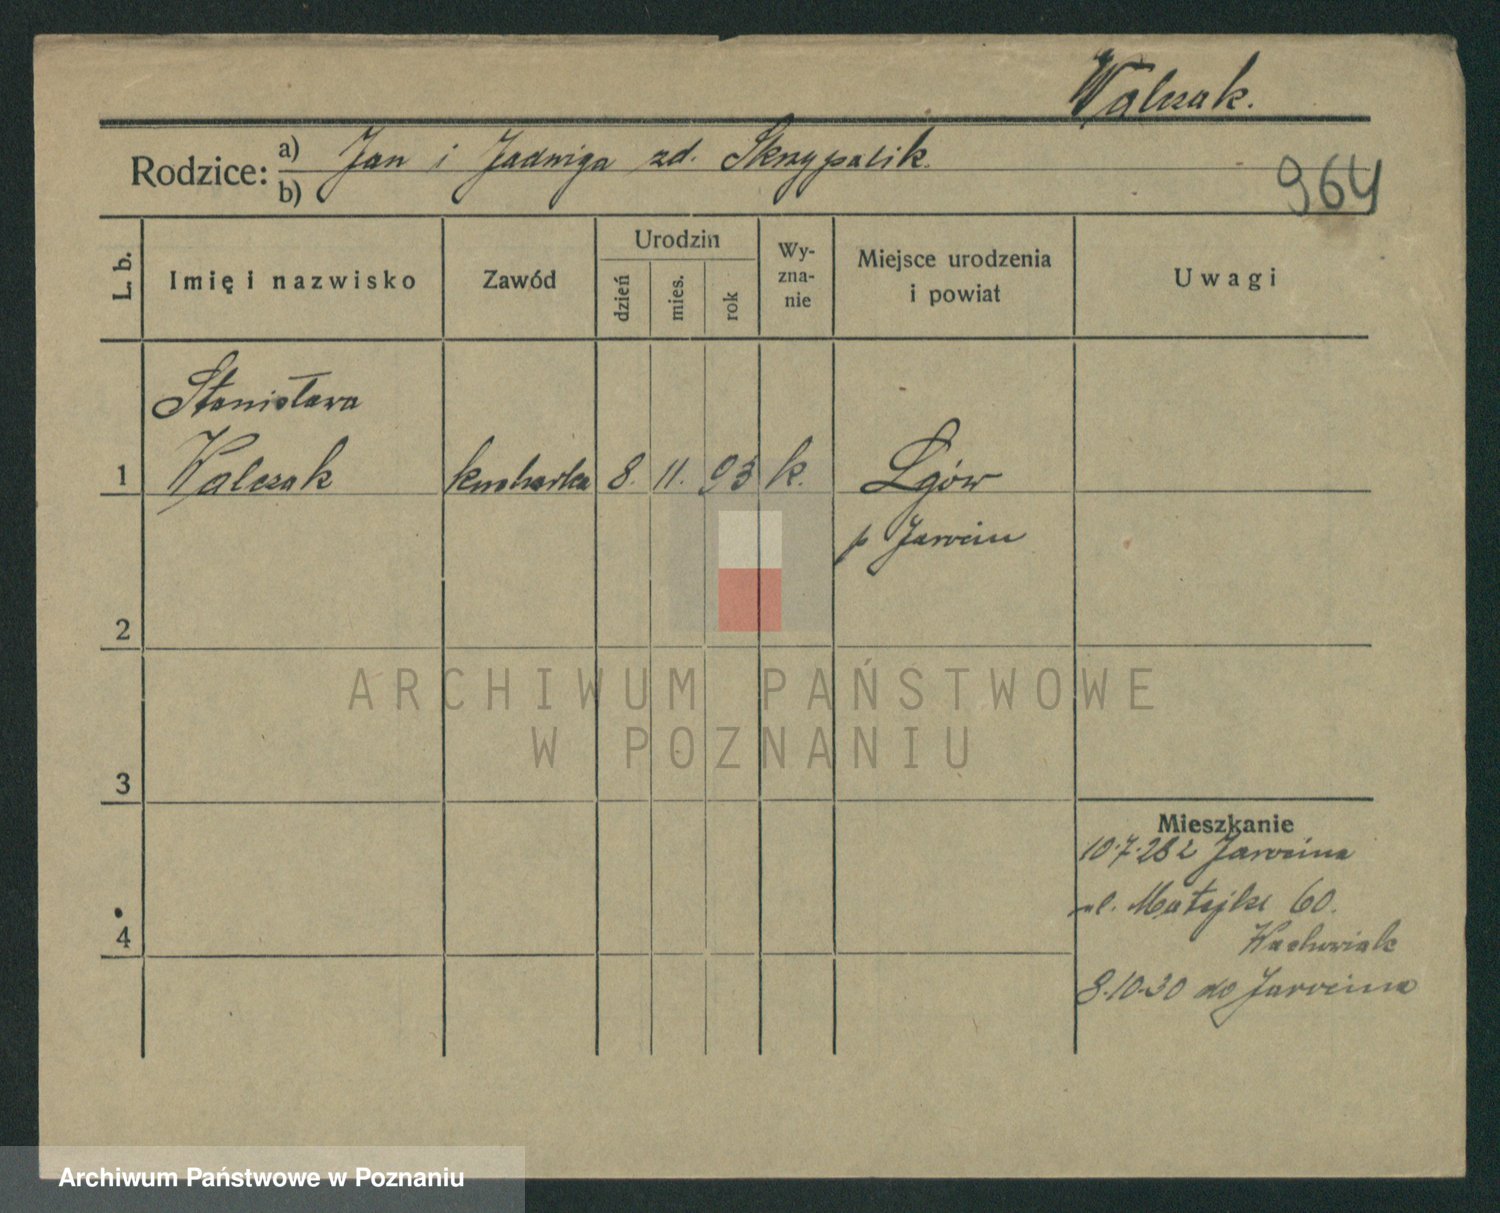 Walczak.
Rodzice: a) Jan i Jadwiga zd. Skrzypalik.
b)
964
L. b.
Imię i nazwisko
Zawód
Urodzin
dzień
mies.
rok
Wy-
zna-
nie
Miejsce urodzenia
i powiat
Uwagi
Stanisława
1 Walczak kucharka 8. 11. 93 k. Lgów
p Jarocin
2
ARCHIWUM PAŃSTWOWE
W POZNANIU
3
Mieszkanie
10.7.28 z Jarocina
ul. Matejki 60.
Wachowiak
4
8.10.30 do Jarocina
Archiwum Państwowe w Poznaniu